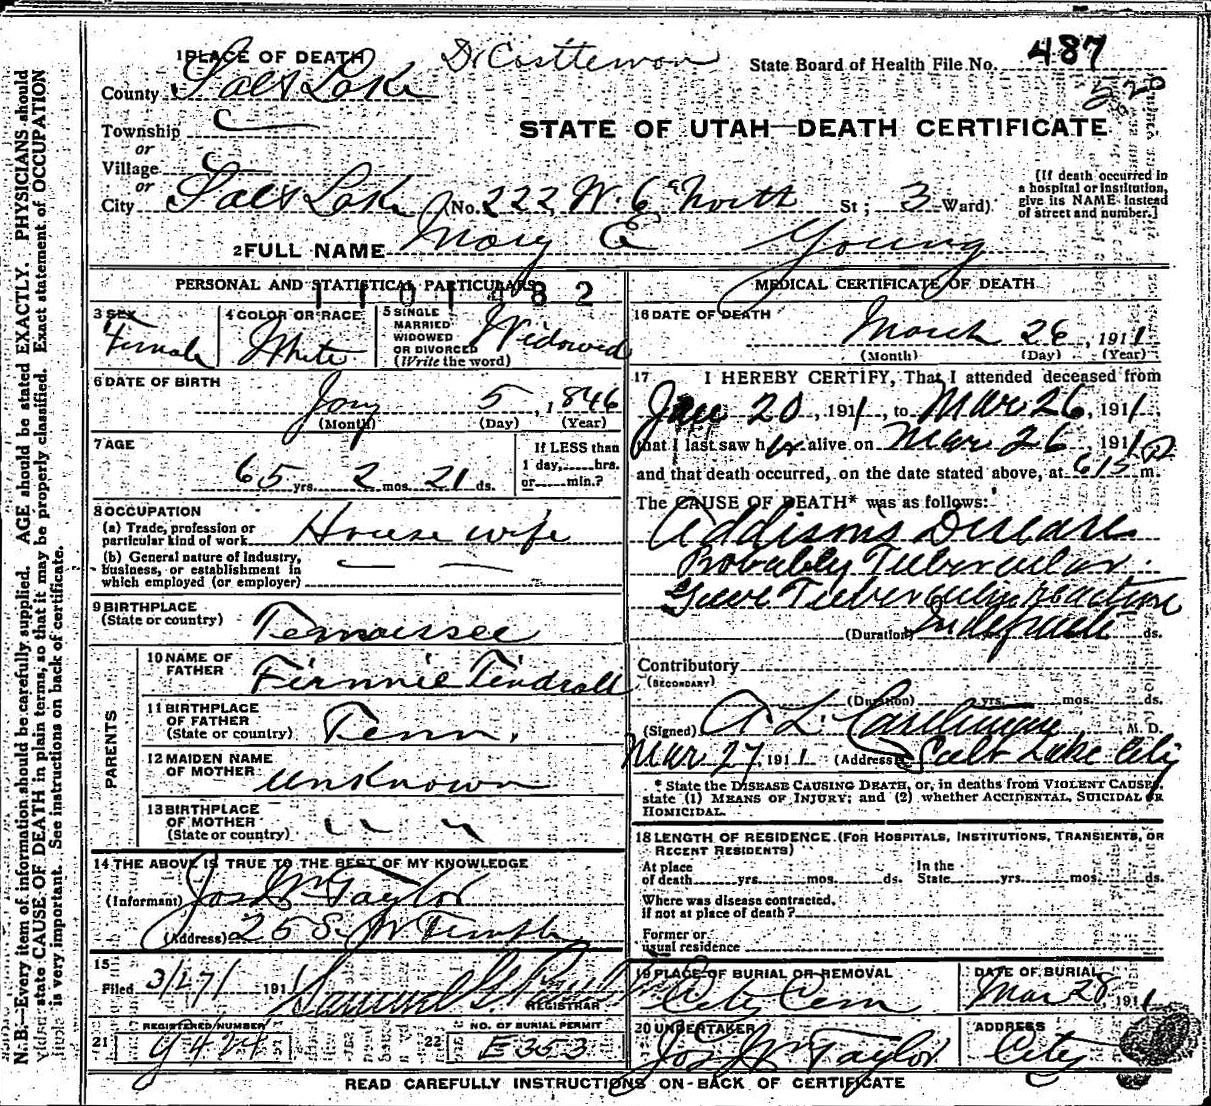 1 PLACE OF DEATH
State Board of Health File No. 487
520
County Salt Lake
Township
or
Village
or
STATE OF UTAH—DEATH CERTIFICATE
City Salt Lake (No. 222 W. 6th North St; 3 Ward)
[If death occurred in a hospital or institution, give its NAME instead of street and number.]
2 FULL NAME Mary E Young
PERSONAL AND STATISTICAL PARTICULARS
3 SEX Female
4 COLOR OR RACE White
5 SINGLE MARRIED WIDOWED OR DIVORCED (Write the word) Widowed
6 DATE OF BIRTH Jany 5, 1846
(Month) (Day) (Year)
7 AGE 65 yrs. 2 mos. 21 ds.
If LESS than 1 day, hrs. or min.?
8 OCCUPATION
(a) Trade, profession or particular kind of work House wife
(b) General nature of Industry, Business, or establishment in which employed (or employer)
9 BIRTHPLACE (State or country) Tennessee
PARENTS
10 NAME OF FATHER Finnie Tindrall
11 BIRTHPLACE OF FATHER (State or country) Tenn.
12 MAIDEN NAME OF MOTHER Unknown
13 BIRTHPLACE OF MOTHER (State or country) " "
14 THE ABOVE IS TRUE TO THE BEST OF MY KNOWLEDGE
(Informant) Jos Wm Taylor
(Address) 25 S. W Temple
15 Filed 3/27/ 191 Samuel G.
REGISTRAR
21 REGISTERED NUMBER 9424
22 NO. OF BURIAL PERMIT E353
MEDICAL CERTIFICATE OF DEATH
16 DATE OF DEATH March 26, 1911
(Month) (Day) (Year)
17 I HEREBY CERTIFY, That I attended deceased from
Jan 20, 1911, to Mar 26, 1911,
that I last saw her alive on Mar 26, 1911,
and that death occurred, on the date stated above, at 615 P m.
The CAUSE OF DEATH* was as follows:
Addisons Disease
Probably Tubercular
Gave Tuberculin reaction
(Duration) Indefinite ds.
Contributory
(SECONDARY)
(Duration) yrs. mos. ds.
(Signed) A L Castleman, M. D.
Mar 27, 1911 (Address) Salt Lake City
* State the DISEASE CAUSING DEATH, or, in deaths from VIOLENT CAUSES, state (1) MEANS OF INJURY; and (2) whether ACCIDENTAL, SUICIDAL OR HOMICIDAL.
18 LENGTH OF RESIDENCE (FOR HOSPITALS, INSTITUTIONS, TRANSIENTS, OR RECENT RESIDENTS)
At place of death yrs. mos. ds. In the State yrs. mos. ds.
Where was disease contracted, if not at place of death?
Former or usual residence
19 PLACE OF BURIAL OR REMOVAL City Cem
DATE OF BURIAL Mar 28 1911
20 UNDERTAKER Jos Wm Taylor
ADDRESS City
READ CAREFULLY INSTRUCTIONS ON BACK OF CERTIFICATE
N. B.—Every item of information should be carefully supplied. AGE should be stated EXACTLY. PHYSICIANS should
state CAUSE OF DEATH in plain terms, so that it may be properly classified. Exact statement of OCCUPATION
is very important. See instructions on back of certificate.